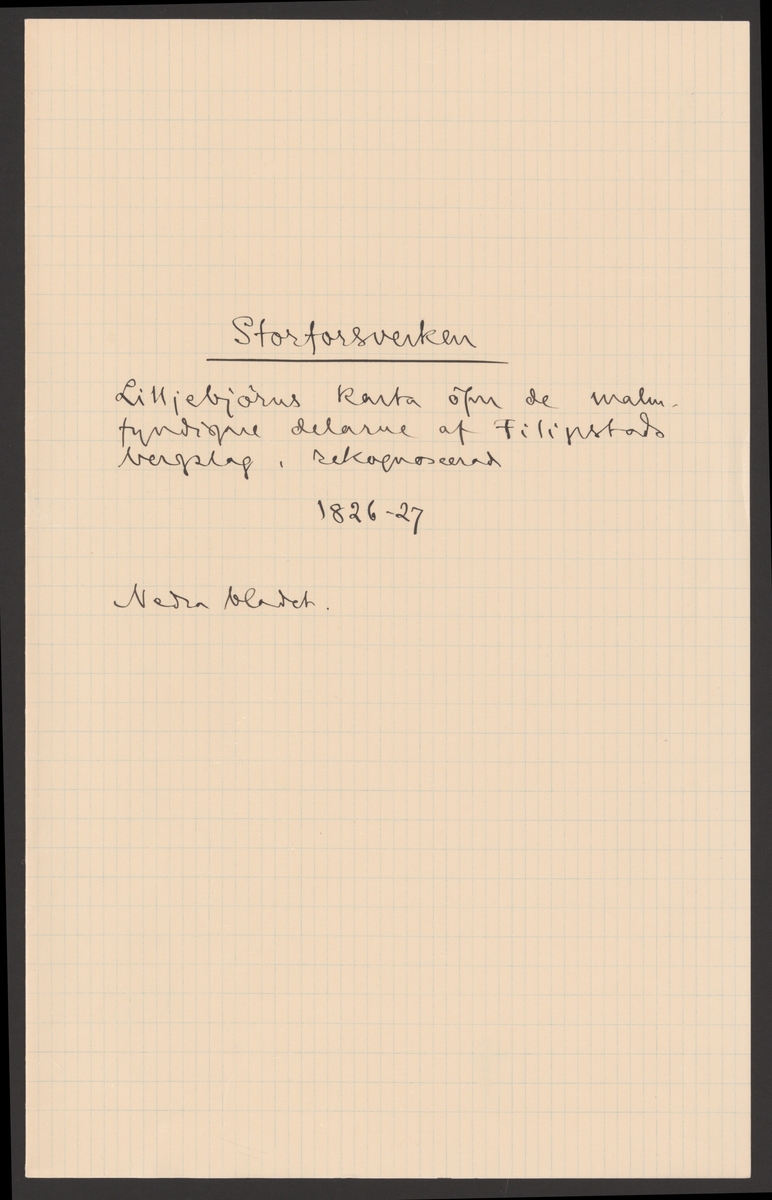 Storforsverken
Lilljebjörns karta öfver de malm-
fyndigare delarne af Filipstads
bergslag, rekognoscerad
1826-27
Nedra bladet.